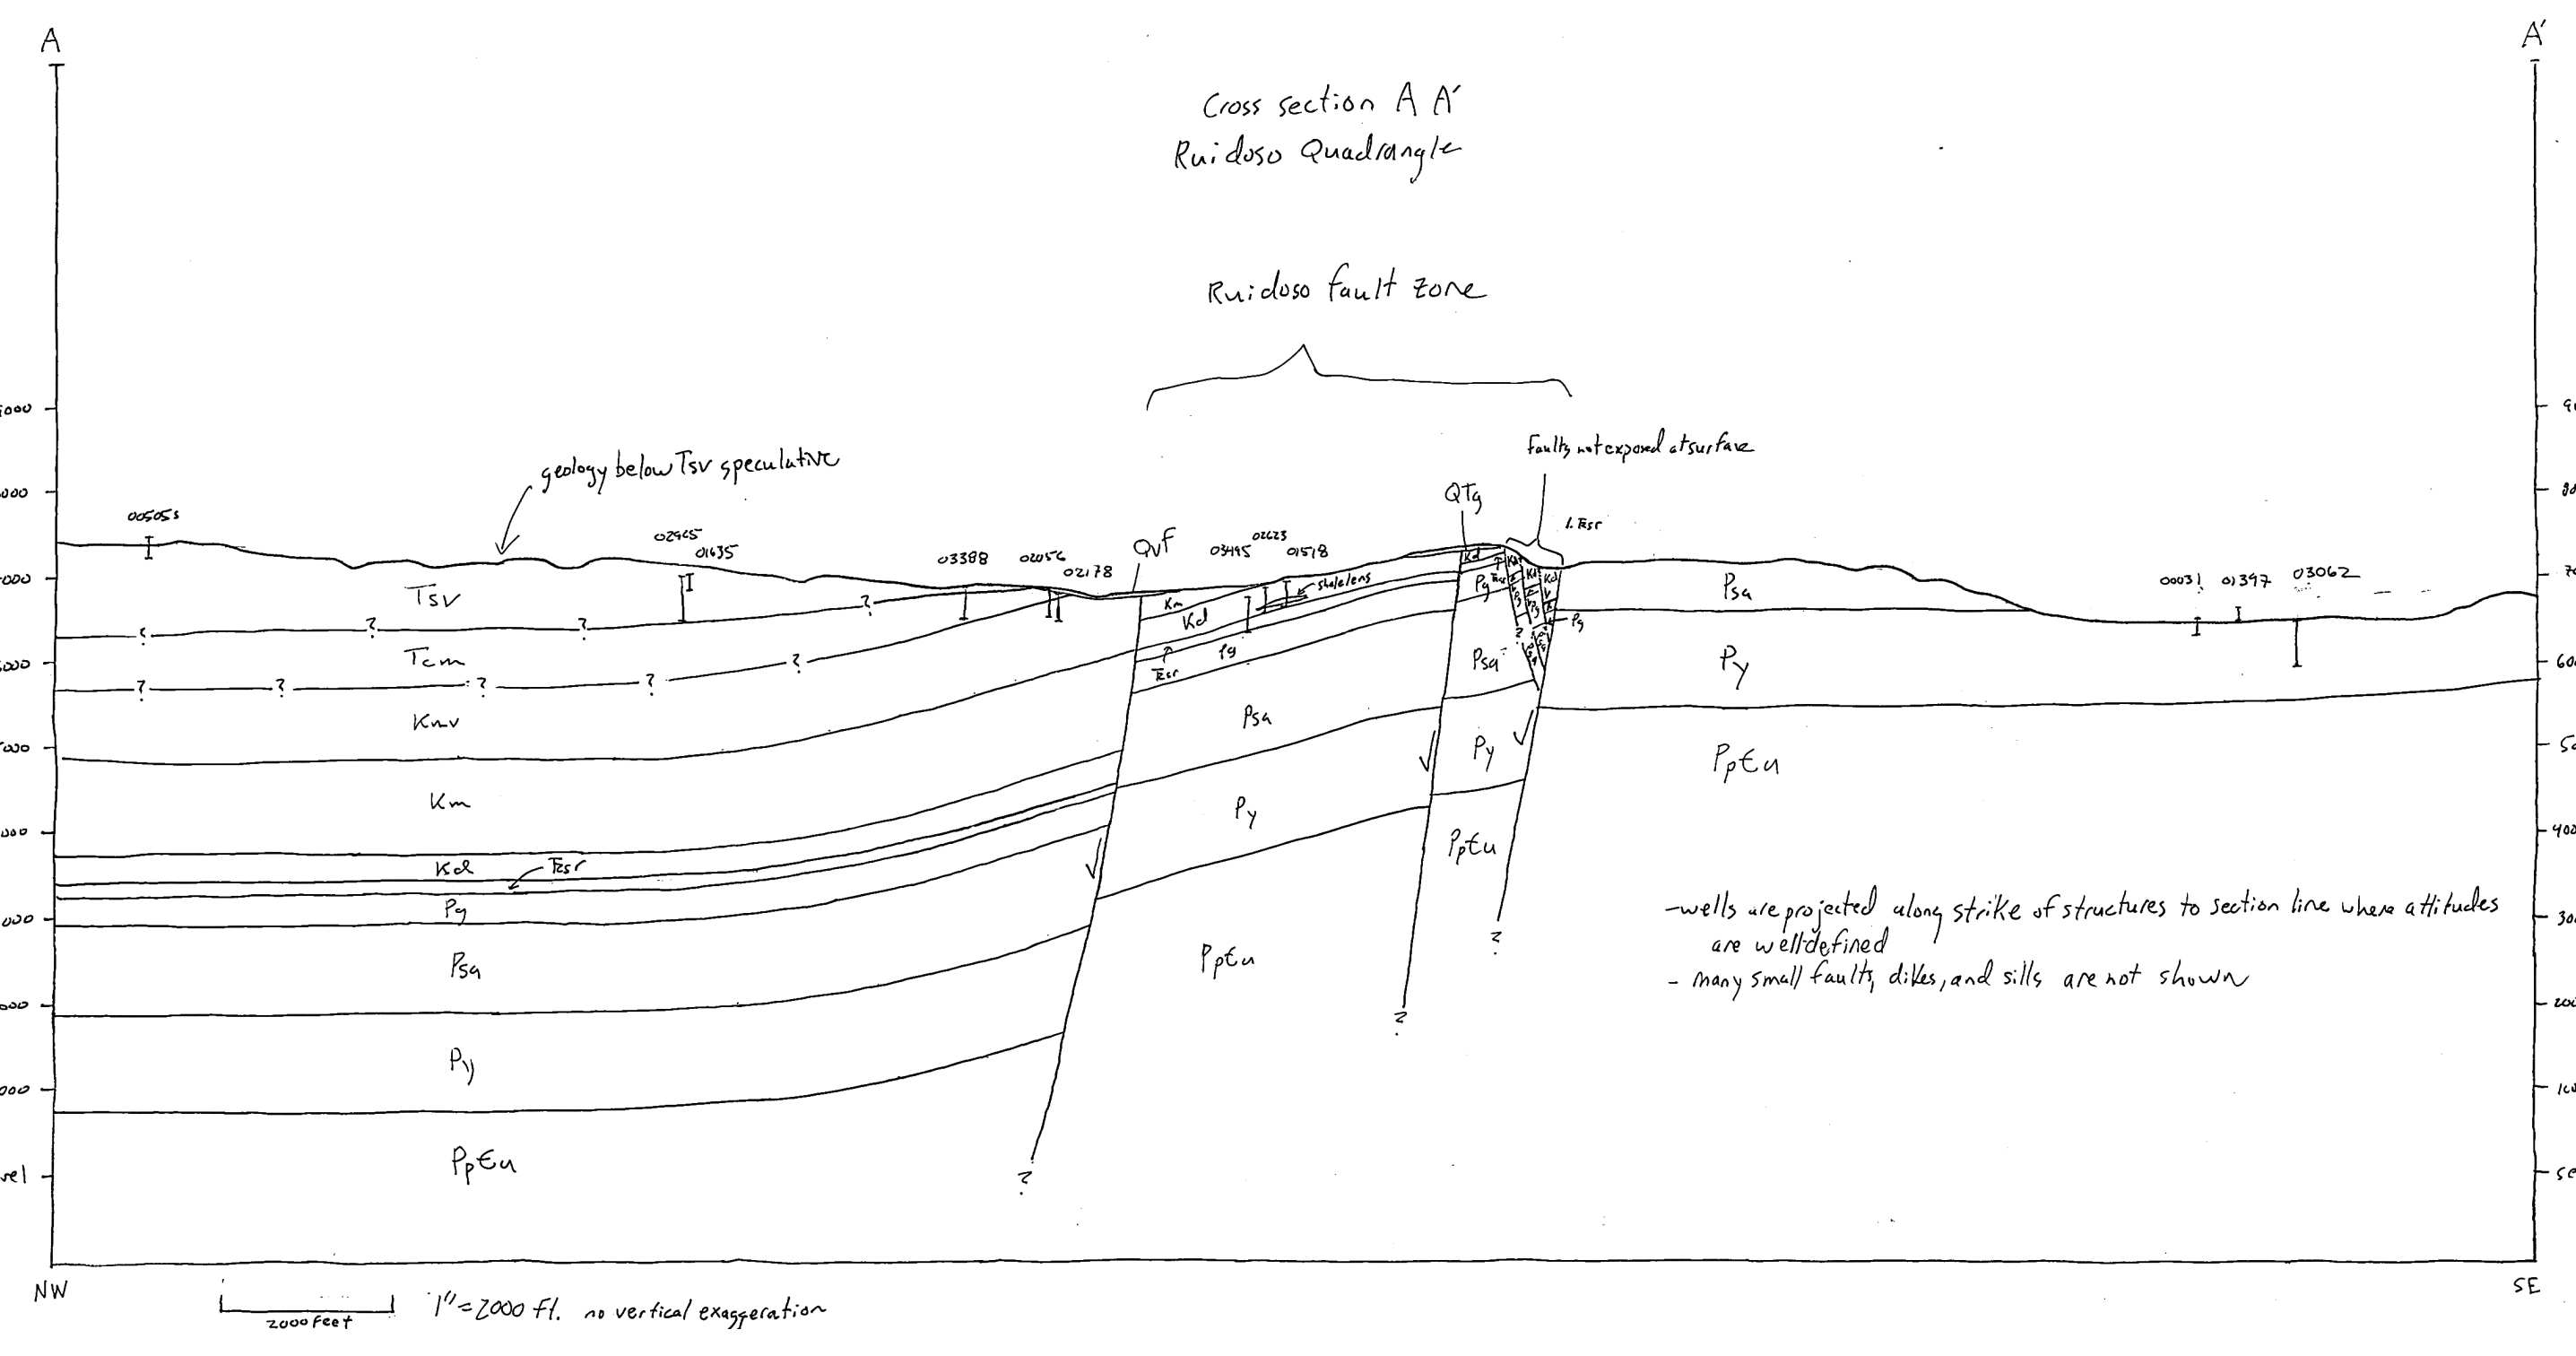 A
A′
Cross section A A′
Ruidoso Quadrangle
Ruidoso fault zone
faults not exposed at surface
geology below Tsv speculative
QTg
1. Ꞧsr
005055
02965
01635
03388
02056
02178
Qvf
03495
02623
01518
shale lens
00031
01397
03062
Tsv
?
?
?
?
Tcm
?
?
?
?
?
Knv
Km
Kd
Ꞧsr
Pg
Psa
Py
PpЄu
?
Km
Kd
Ꞧsr
Pg
Psa
Py
PpЄu
?
Kd
Pg
Ꞧsr
Psa
Py
PpЄu
?
Kd
Kd
Kd
Pg
?
Psa
Py
PpЄu
- wells are projected along strike of structures to section line where attitudes
are well-defined
- many small faults, dikes, and sills are not shown
NW
SE
2000 feet
1″=2000 ft. no vertical exaggeration